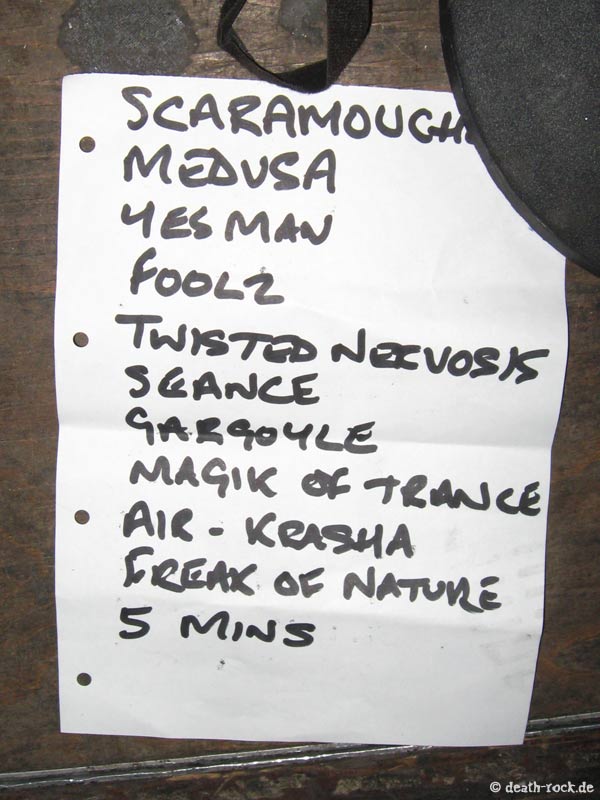 SCARAMOUCH
MEDUSA
YES MAN
FOOLZ
TWISTED NERVOSIS
SEANCE
GARGOYLE
MAGIK OF TRANCE
AIR - KRASHA
FREAK OF NATURE
5 MINS
© death-rock.de